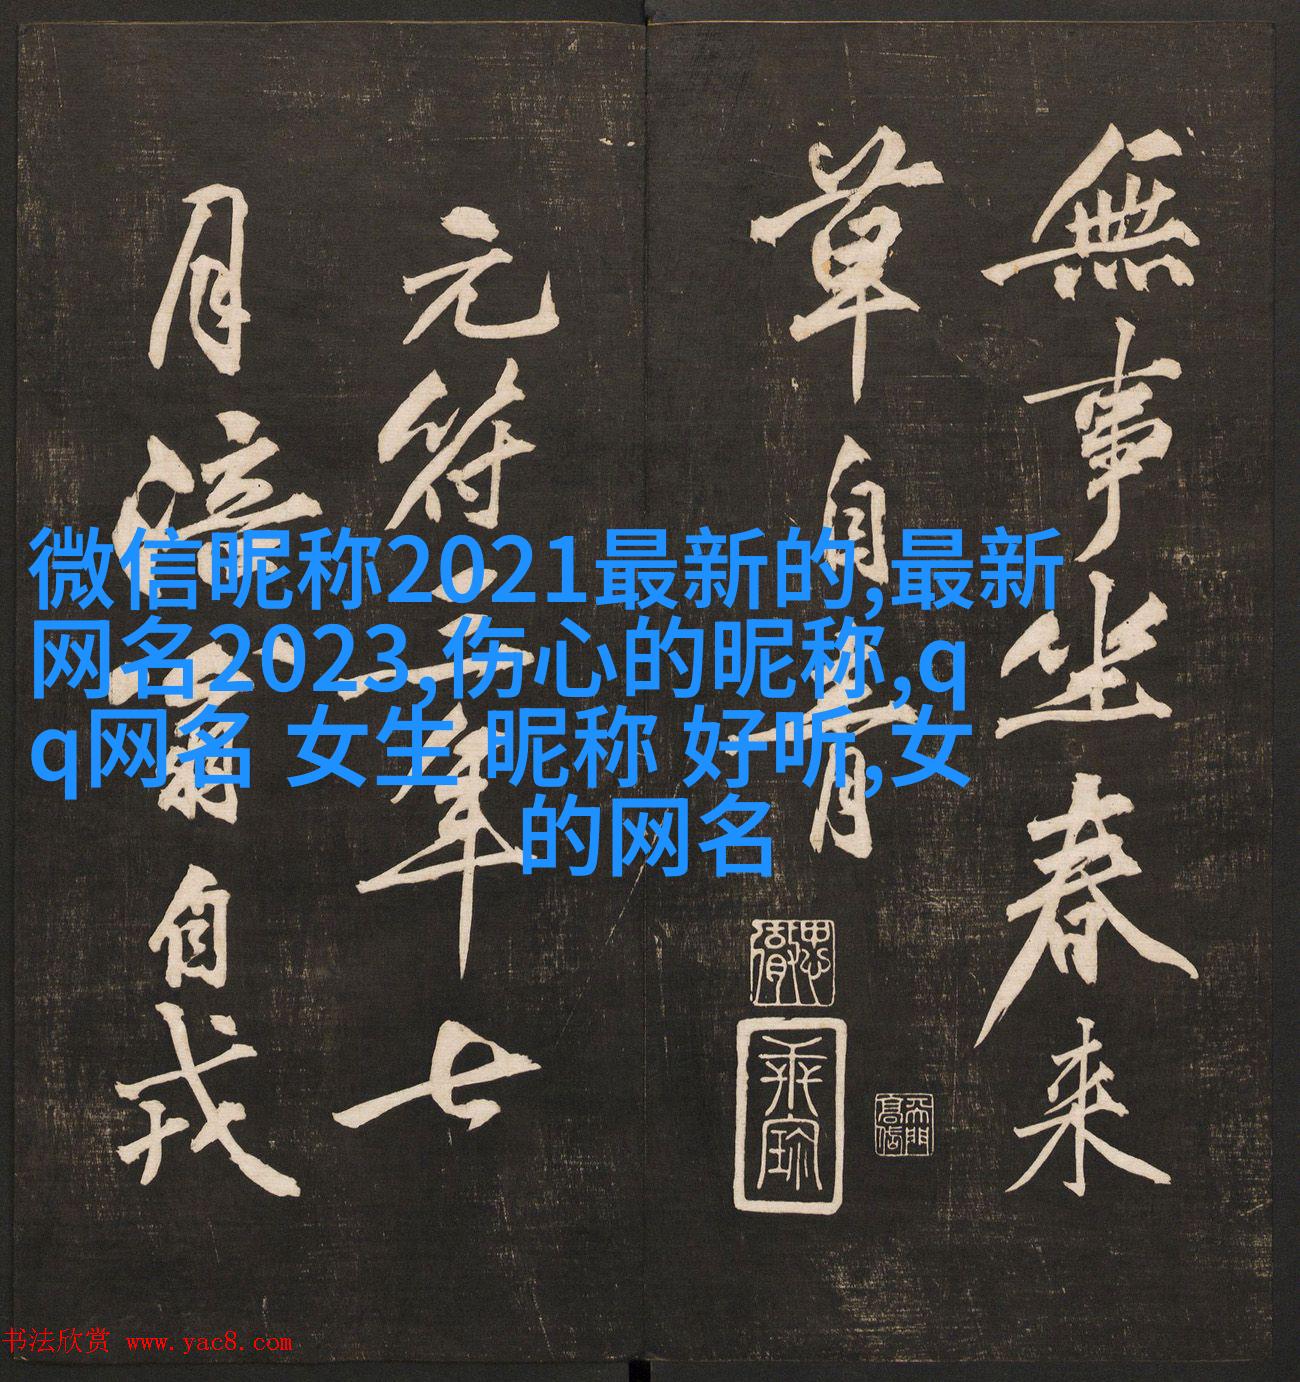 無事坐春来
草自青
元符二年七
月涪翁自戎
微信昵称2021最新的,最新
网名2023,伤心的昵称,q
q网名 女生 昵称 好听,女
的网名
书法欣赏 www.yac8.com